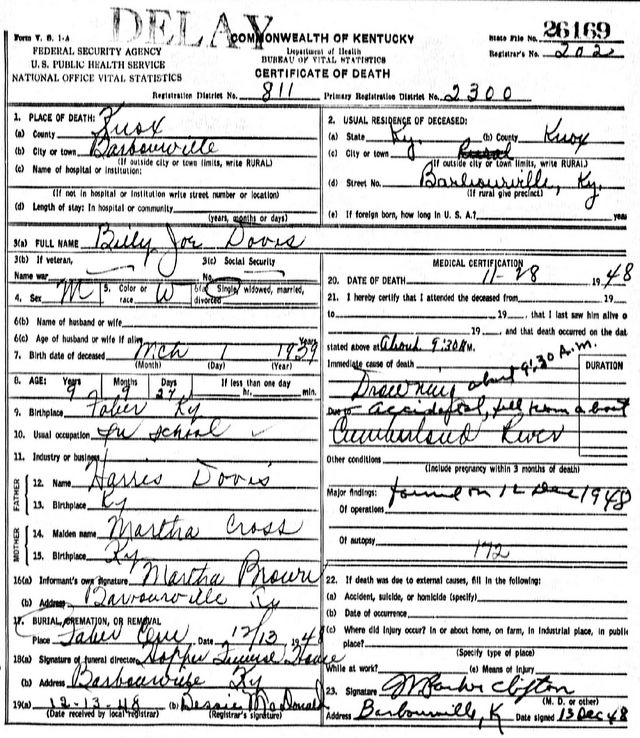 DELAY
Form V. S. 1-A
FEDERAL SECURITY AGENCY
U. S. PUBLIC HEALTH SERVICE
NATIONAL OFFICE VITAL STATISTICS
COMMONWEALTH OF KENTUCKY
Department of Health
BUREAU OF VITAL STATISTICS
CERTIFICATE OF DEATH
State File No. 26169
Registrar's No. 202
Registration District No. 811 Primary Registration District No. 2300
1. PLACE OF DEATH:
(a) County Knox
(b) City or town Barbourville
(If outside city or town limits, write RURAL)
(c) Name of hospital or institution:
(If not in hospital or institution write street number or location)
(d) Length of stay: In hospital or community
(years, months or days)
2. USUAL RESIDENCE OF DECEASED:
(a) State Ky. (b) County Knox
(c) City or town Rural
(If outside city or town limits, write RURAL)
(d) Street No. Barbourville, Ky.
(If rural give precinct)
(e) If foreign born, how long in U. S. A.? years
3(a) FULL NAME Billy Joe Davis
3(b) If veteran, 3(c) Social Security
Name war No.
4. Sex M 5. Color or race W 6(a) Single, widowed, married, divorced
6(b) Name of husband or wife
6(c) Age of husband or wife if alive Years
7. Birth date of deceased Mch 1 1939
(Month) (Day) (Year)
8. AGE: Years Months Days If less than one day
9 9 27 hr. min.
9. Birthplace Faber Ky
10. Usual occupation In School
11. Industry or business
FATHER
12. Name Harris Davis
13. Birthplace Ky
MOTHER
14. Maiden name Martha Cross
15. Birthplace Ky
16(a) Informant's own signature Martha Brown
(b) Address Barbourville Ky
17. BURIAL, CREMATION, OR REMOVAL
Place Faber Cem Date 12/13 1948
18(a) Signature of funeral director Hopper Funeral House
(b) Address Barbourville Ky
19(a) 12-13-48 (b) Dessie McDonald
(Date received by local registrar) (Registrar's signature)
MEDICAL CERTIFICATION
20. DATE OF DEATH 11-28 1948
21. I hereby certify that I attended the deceased from 19
to 19 , that I last saw him alive o
19 , and that death occurred on the dat
stated above at About 9:30 A M.
Immediate cause of death DURATION
Drowning about 9:30 A.M.
Due to Accidental, fell from a boat
Cumberland River
Other conditions
(Include pregnancy within 3 months of death)
Major findings: found on 12 Dec 1948
Of operations
Of autopsy
172
22. If death was due to external causes, fill in the following:
(a) Accident, suicide, or homicide (specify)
(b) Date of occurrence
(c) Where did injury occur? In or about home, on farm, in industrial place, in public
place?
(Specify type of place)
While at work? (e) Means of Injury
23. Signature Clifton
(M. D. or other)
Address Barbourville, K Date signed 13 Dec 48